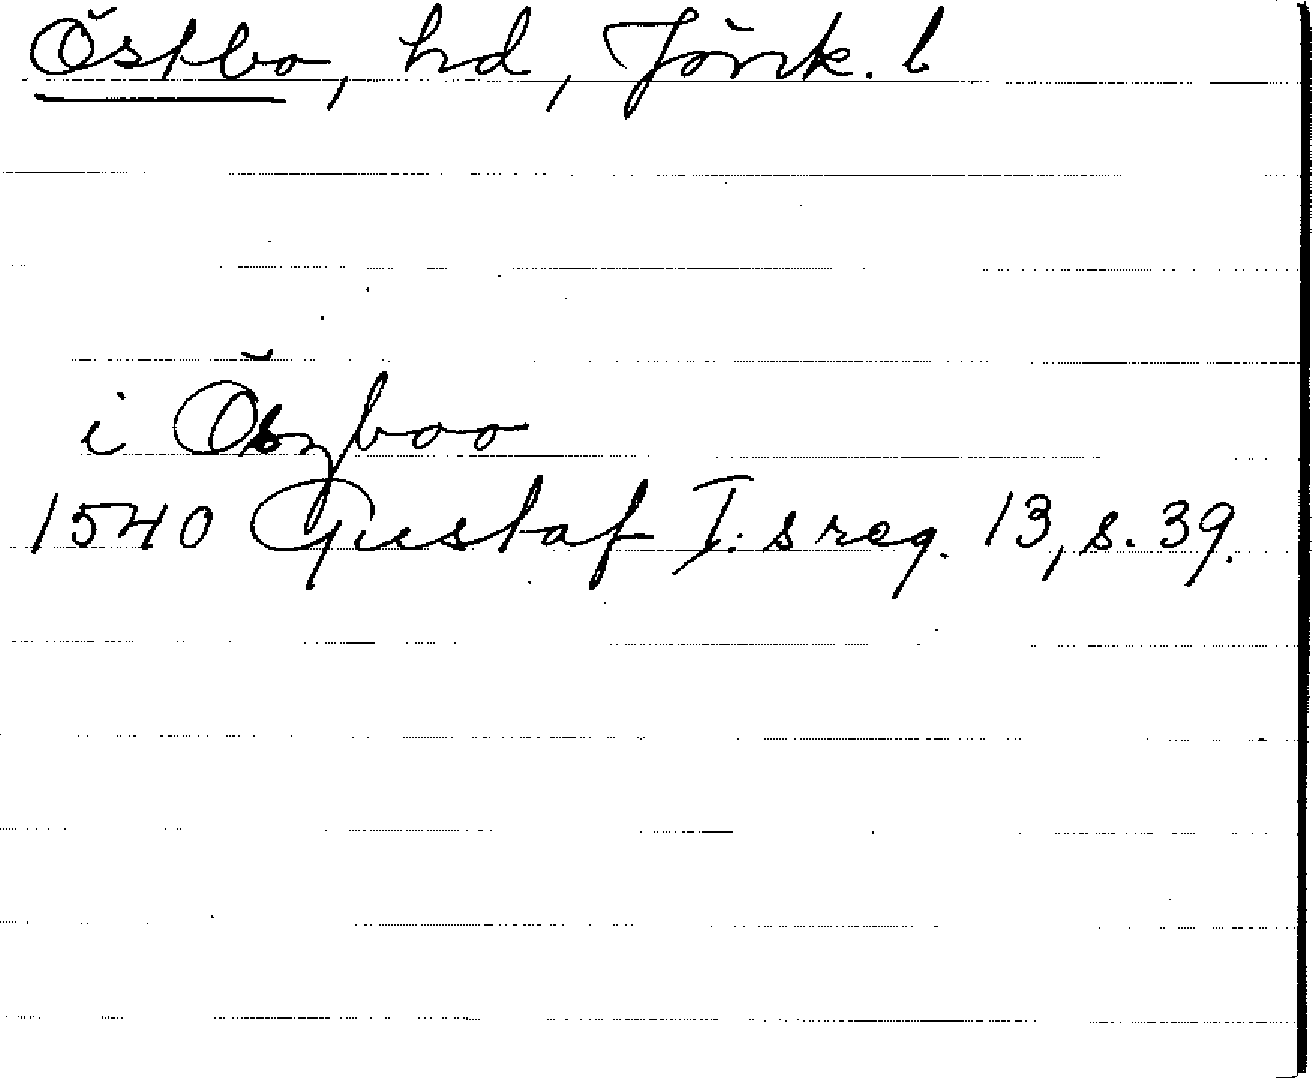 Östbo, hd, Jönk. l
i Öszboo
1540 Gustaf I:s reg. 13, s. 39.